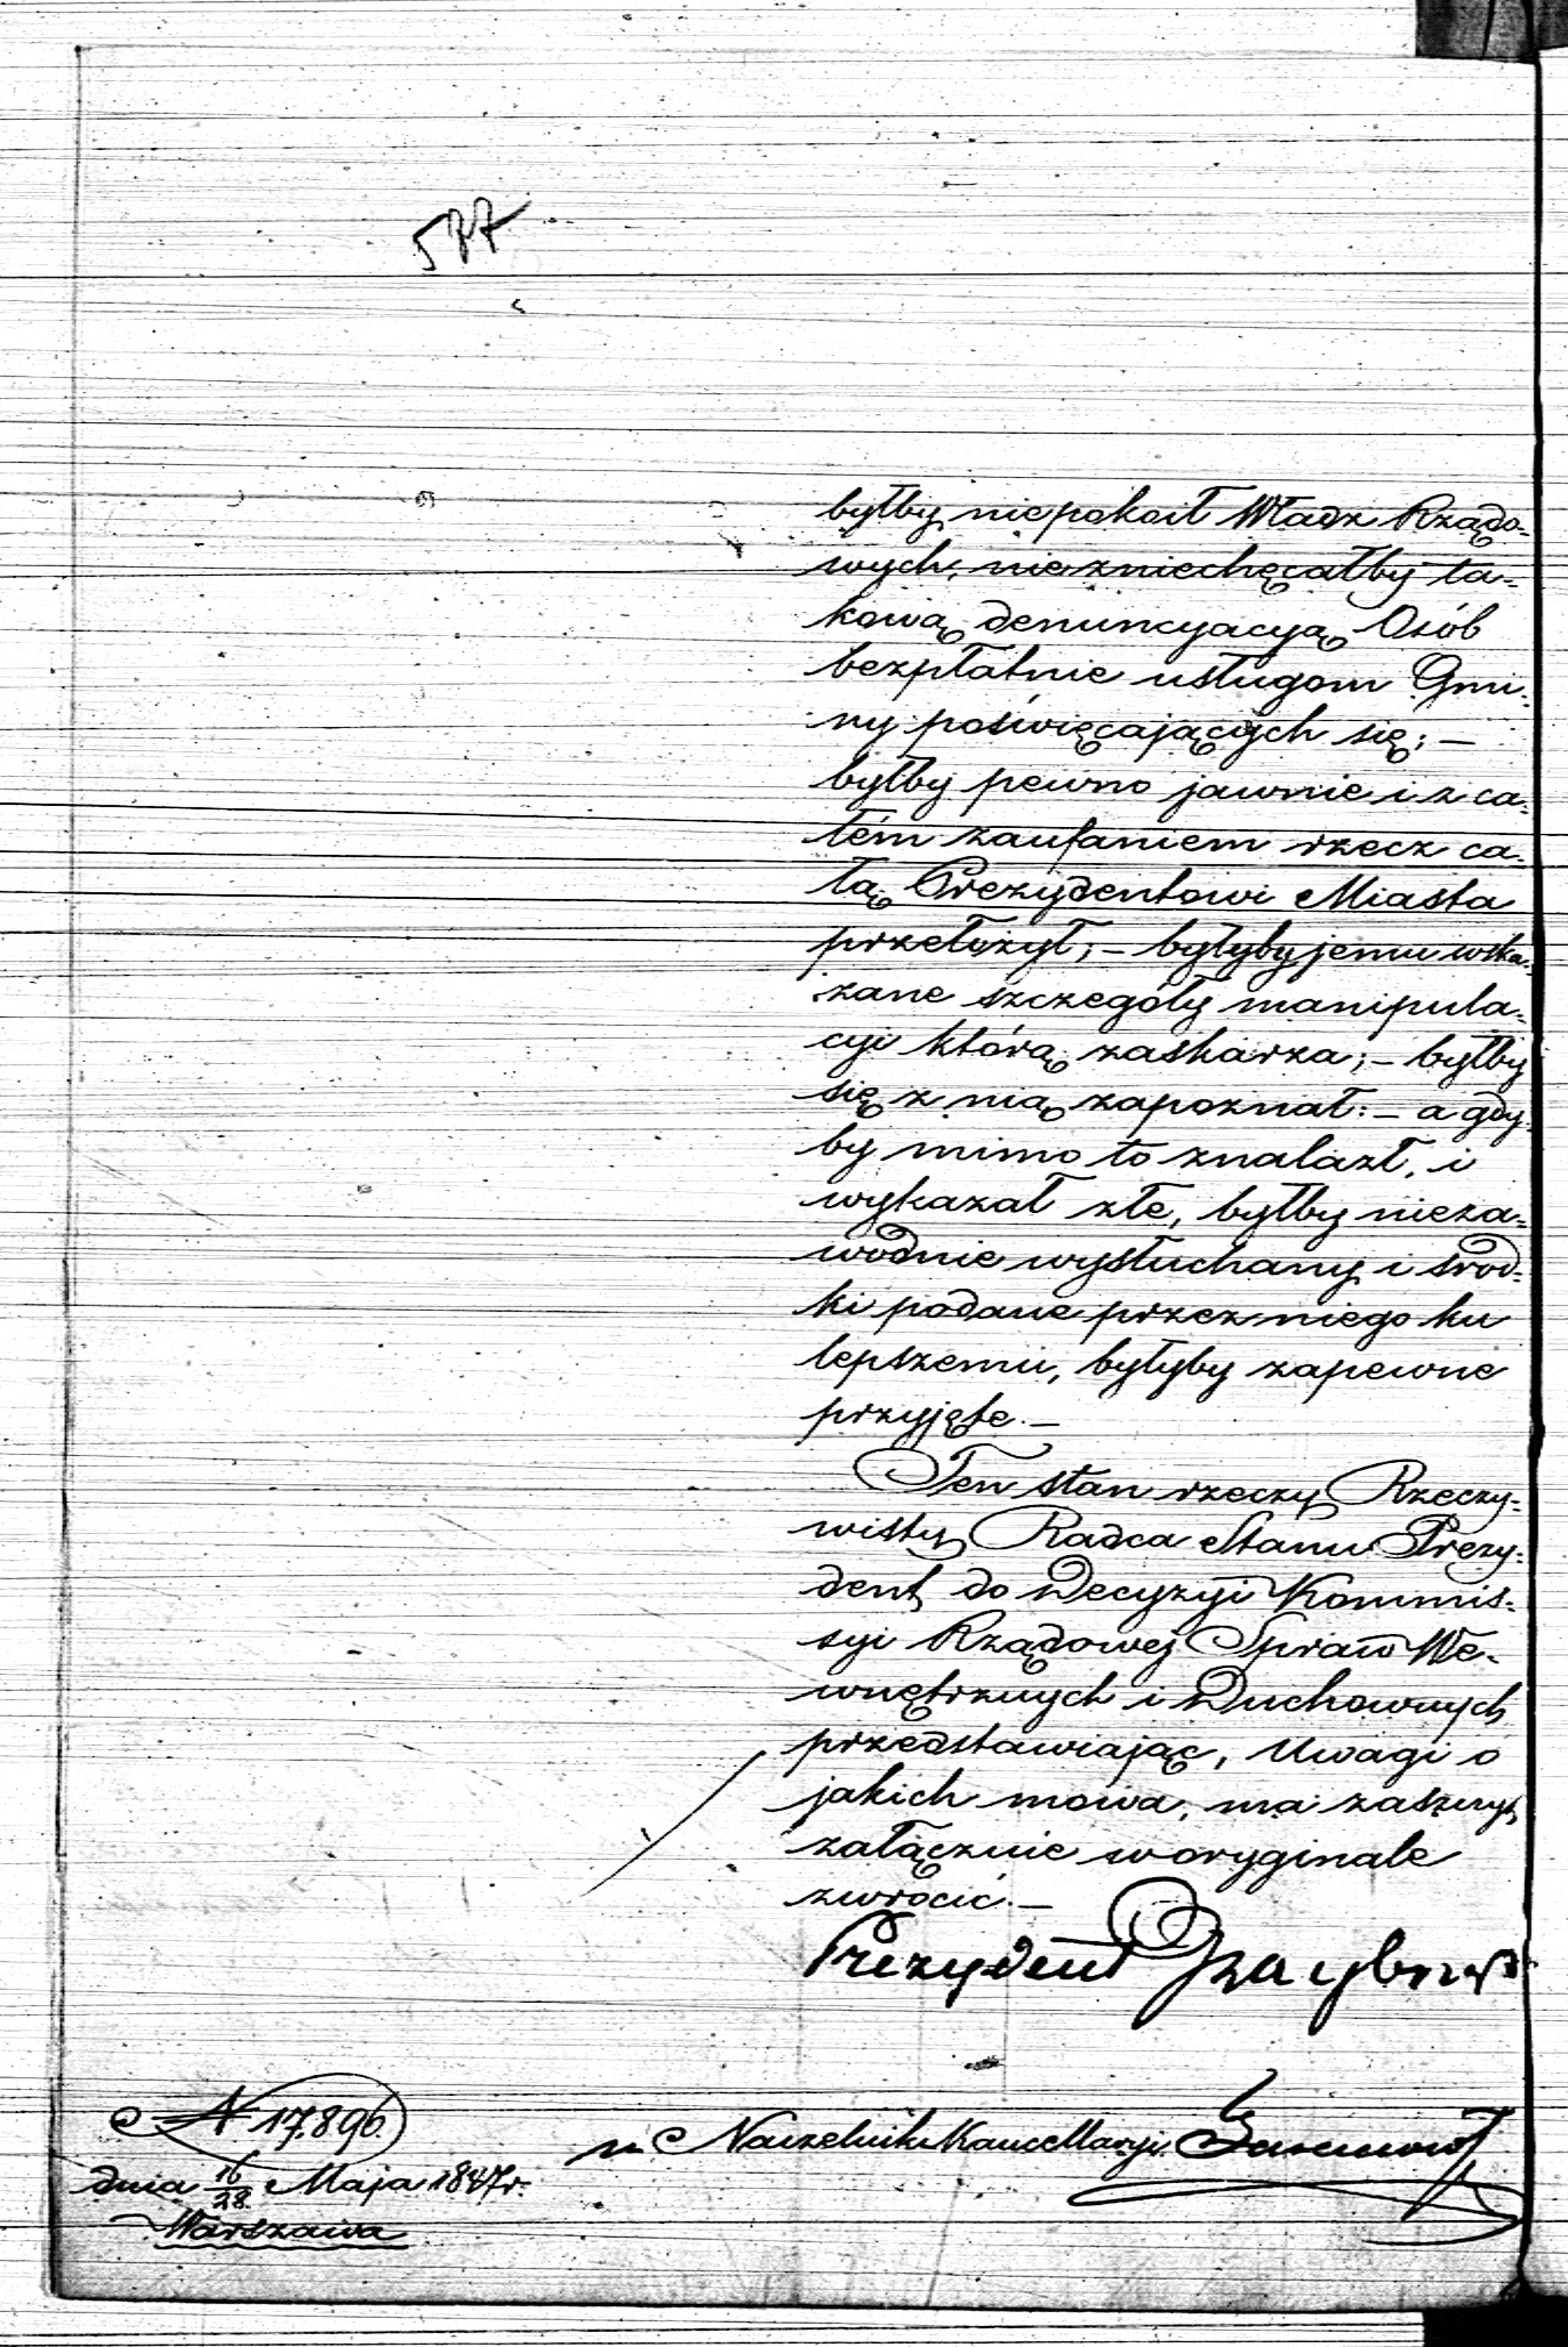 577
byłby niepokoił Władz Rządo-
wych, niezniechęcałby ta-
kową denuncyacyą Osób
bezpłatnie usługom Gmi-
ny poświęcających się; –
byłby pewno jawnie i z ca-
łém zaufaniem rzecz ca-
łą Prezydentowi Miasta
przełożył; – byłyby jemu wska-
zane szczegóły manipula-
cyi którą zaskarza; – byłby
się z nią zapoznał: – a gdy-
by mimo to znalazł, i
wykazał złe, byłby nieza-
wodnie wysłuchany i środ-
ki podane przez niego ku
lepszemu, byłyby zapewne
przyjęte. –
Ten stan rzeczy Rzeczy-
wisty Radca Stanu Prezy-
dent do Decyzyi Kommis-
syi Rządowej Spraw We-
wnętrznych i Duchownych
przedstawiając, Uwagi o
jakich mowa, ma zaszczyt
załącznie w oryginale
zwrócić. –
Prezydent
N 17896.
n Naczelnik Kancellaryi
dnia 16/28 Maja 1847 r.
Warszawa